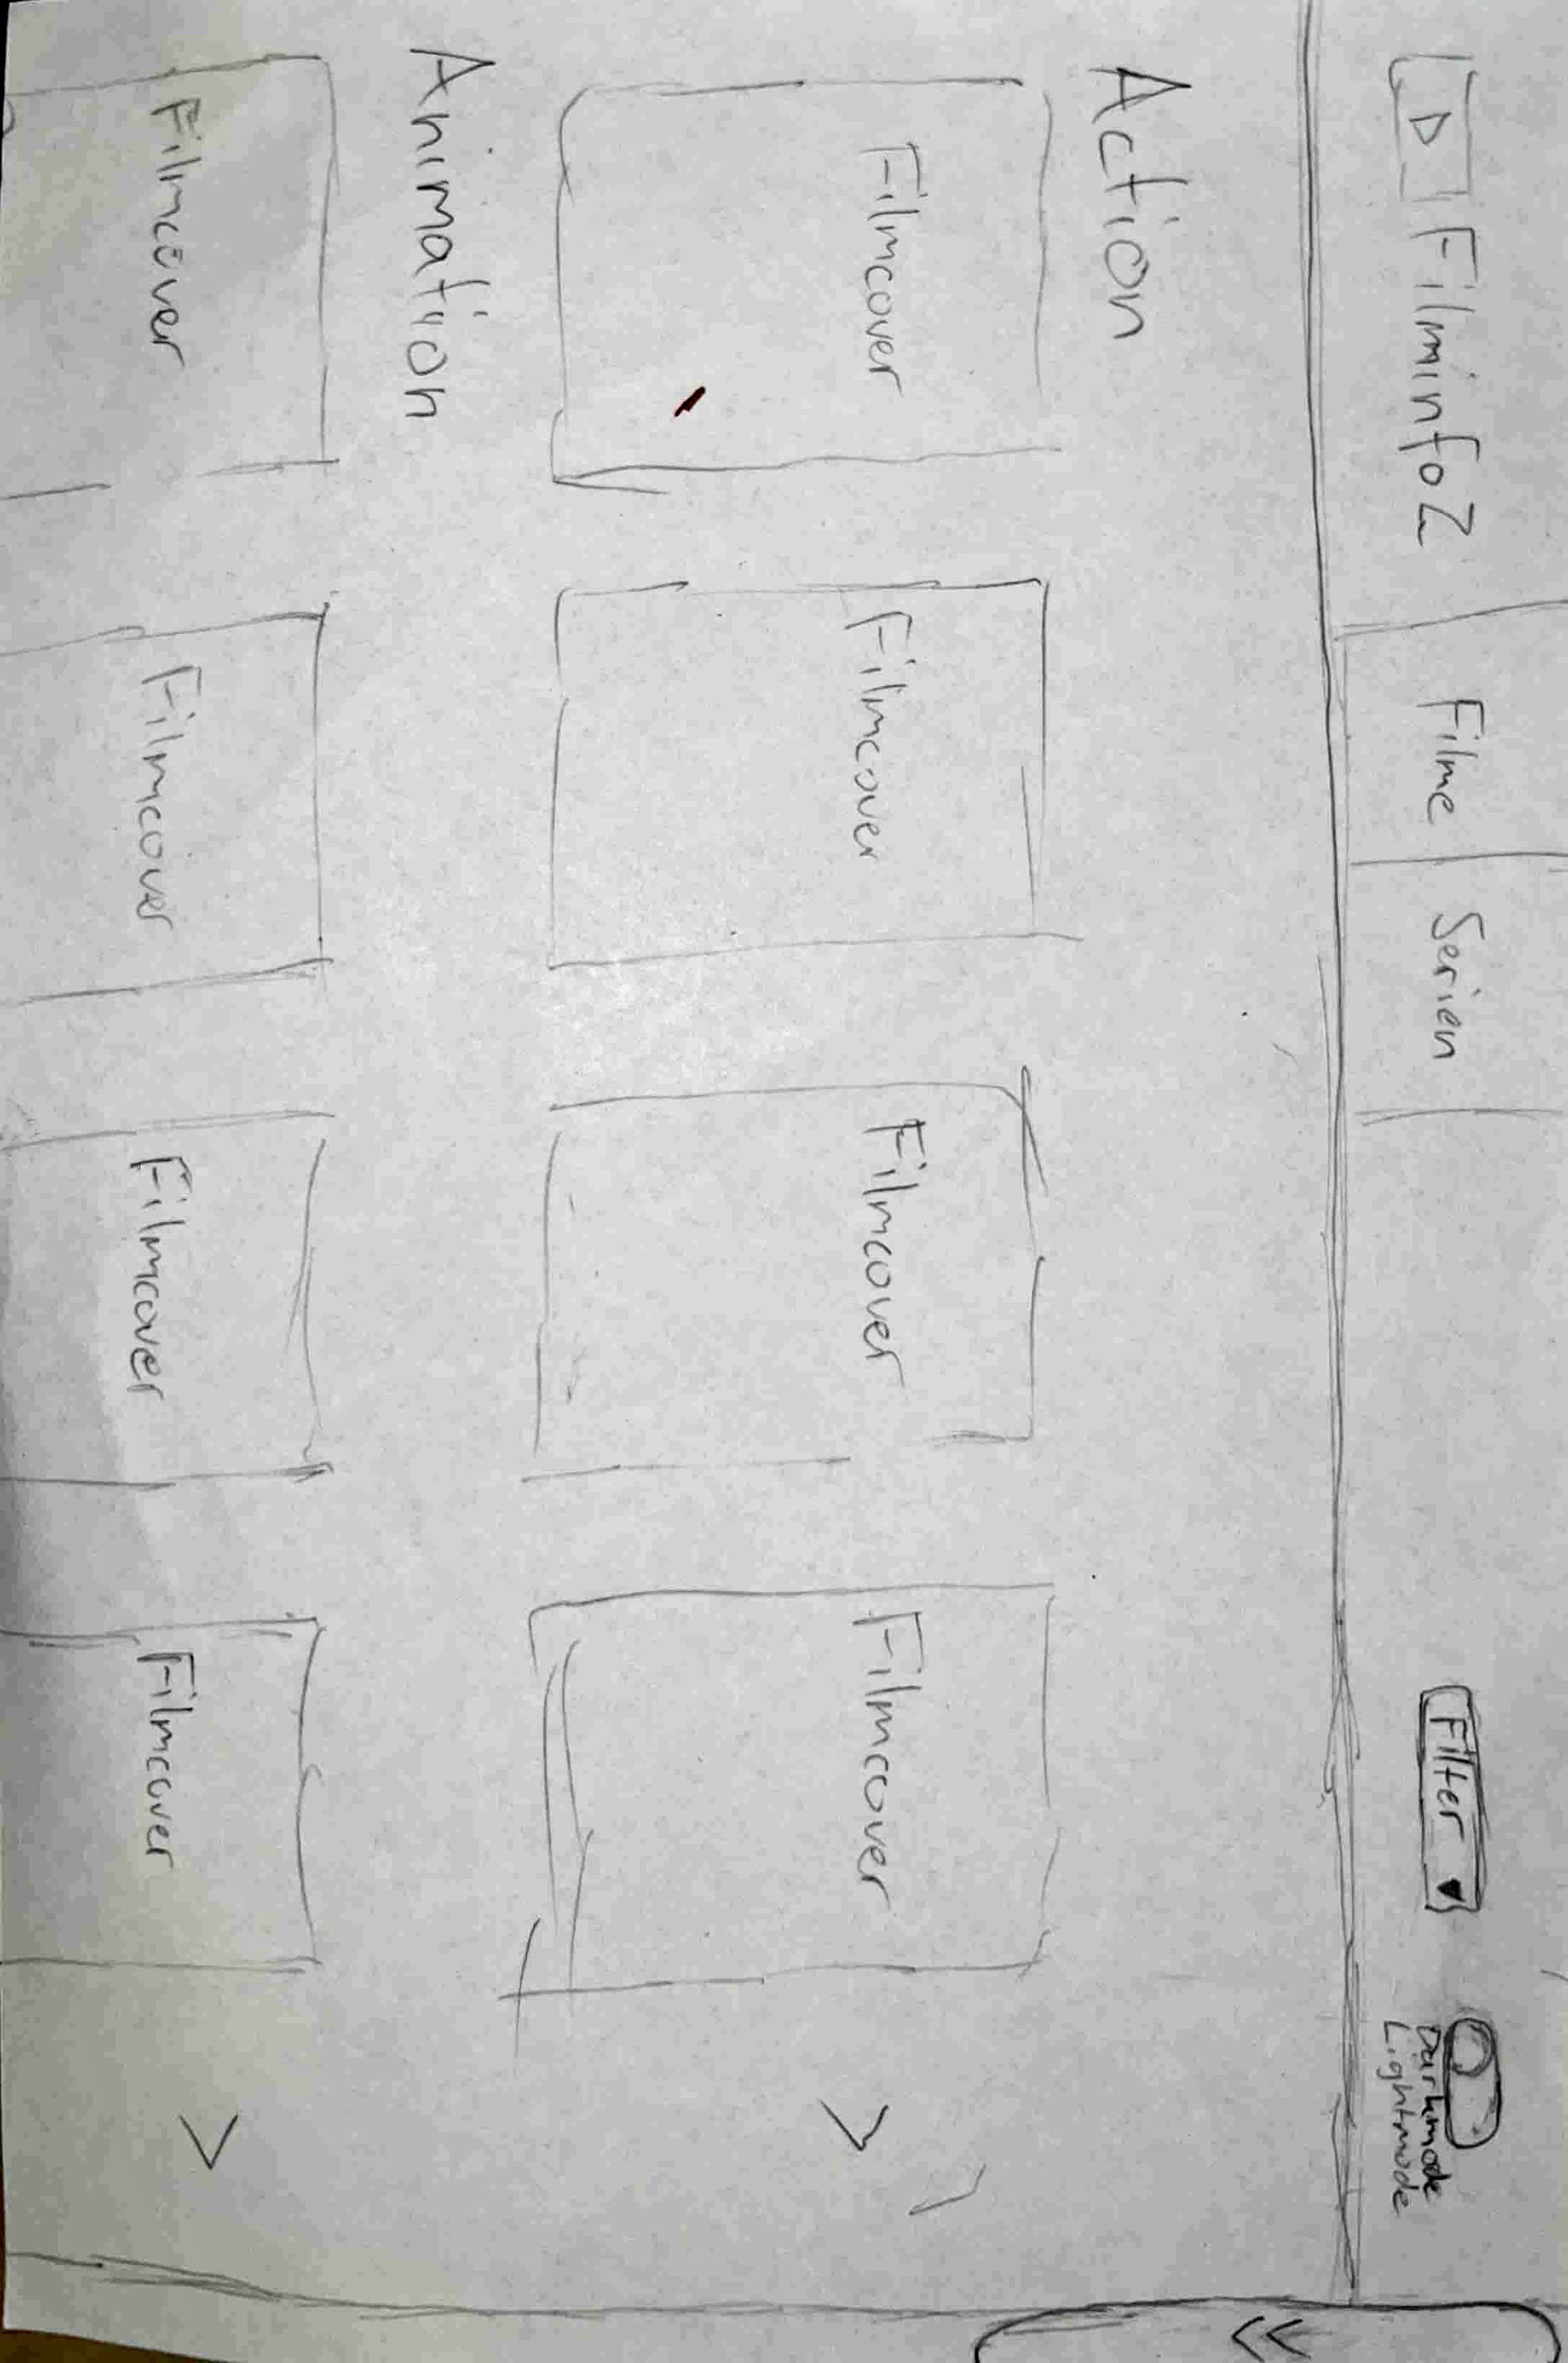 FilminfoZ Filme Serien Filter
Darkmode
Lightmode
Action
Filmcover Filmcover Filmcover Filmcover
Animation
Filmcover Filmcover Filmcover Filmcover